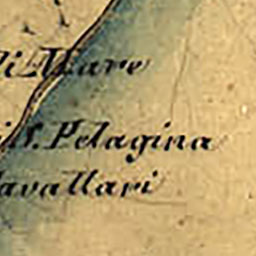 di Mare
di S. Pelagina
Cavallari